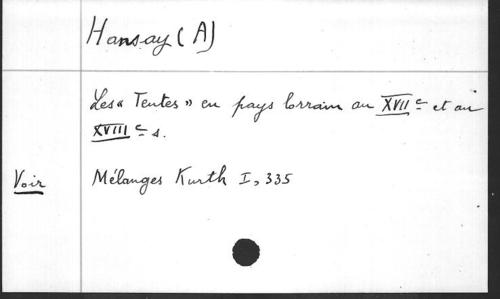 Hansay (A)
Les « Tentes » en pays lorrain au XVIIe et au
XVIIIe s.
Voir Mélanges Kurth I, 335